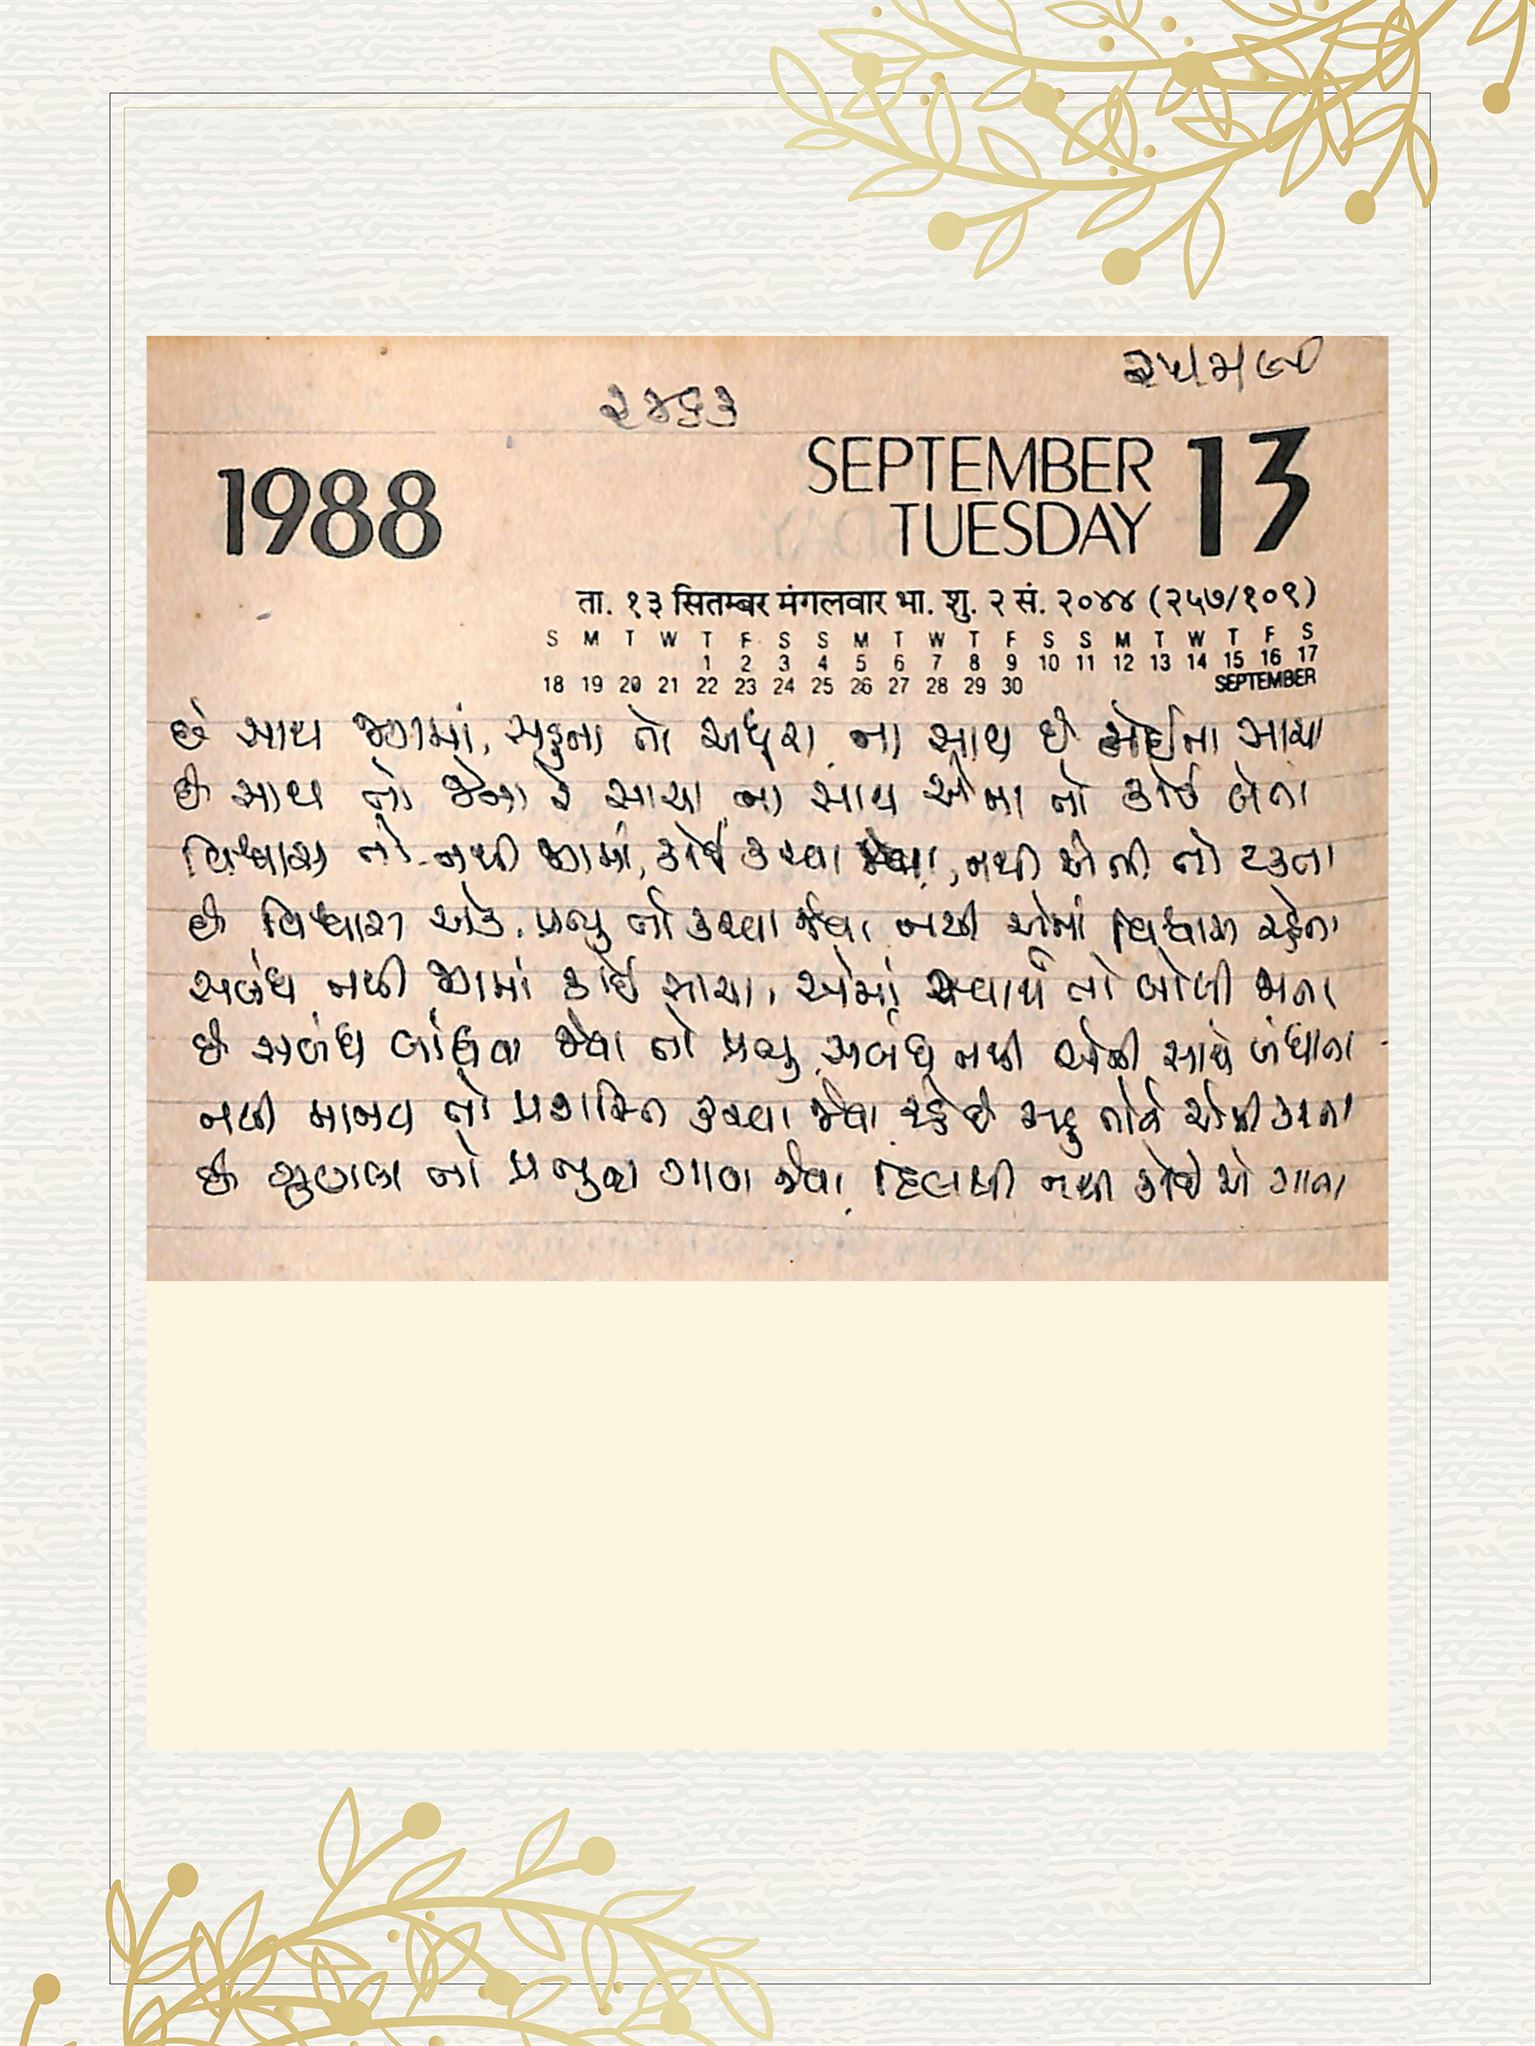 ૨૪૬૩
1988
SEPTEMBER 13
TUESDAY
ता. १३ सितम्बर मंगलवार भा. शु. २ सं. २०४४ (२५७/१०९)
S M T W T F S S M T W T F S S M T W T F S
1 2 3 4 5 6 7 8 9 10 11 12 13 14 15 16 17
18 19 20 21 22 23 24 25 26 27 28 29 30 SEPTEMBER
છે સાથ જગમાં, સહુના તો અધૂરા ના સાથ છે કોઈના સાચા
છે સાથ તો જેના રે સાચા ના સાથ એના તો કોઈ લેતા
વિશ્વાસ તો નથી જગમાં, કોઈ કરવા જેવા, નથી એની તો ટકતા
છે વિશ્વાસ એક પ્રભુ નો કરવા જેવા નથી એમાં વિશ્વાસ રહેતા
સબંધ નથી જગમાં કોઈ સાચા, એમાં સ્વાર્થ તો બોલી જાતા
છે સબંધ બાંધવા જેવા તો પ્રભુ સબંધ નથી એની સાથે બંધાતા
નથી માનવ તો પ્રશસ્તિ કરવા જેવા રહે છે સહુ તોયે એની કરતા
છે ગુણલા તો પ્રભુના ગાવા જેવા દિલથી નથી કોઈ એ ગાતા